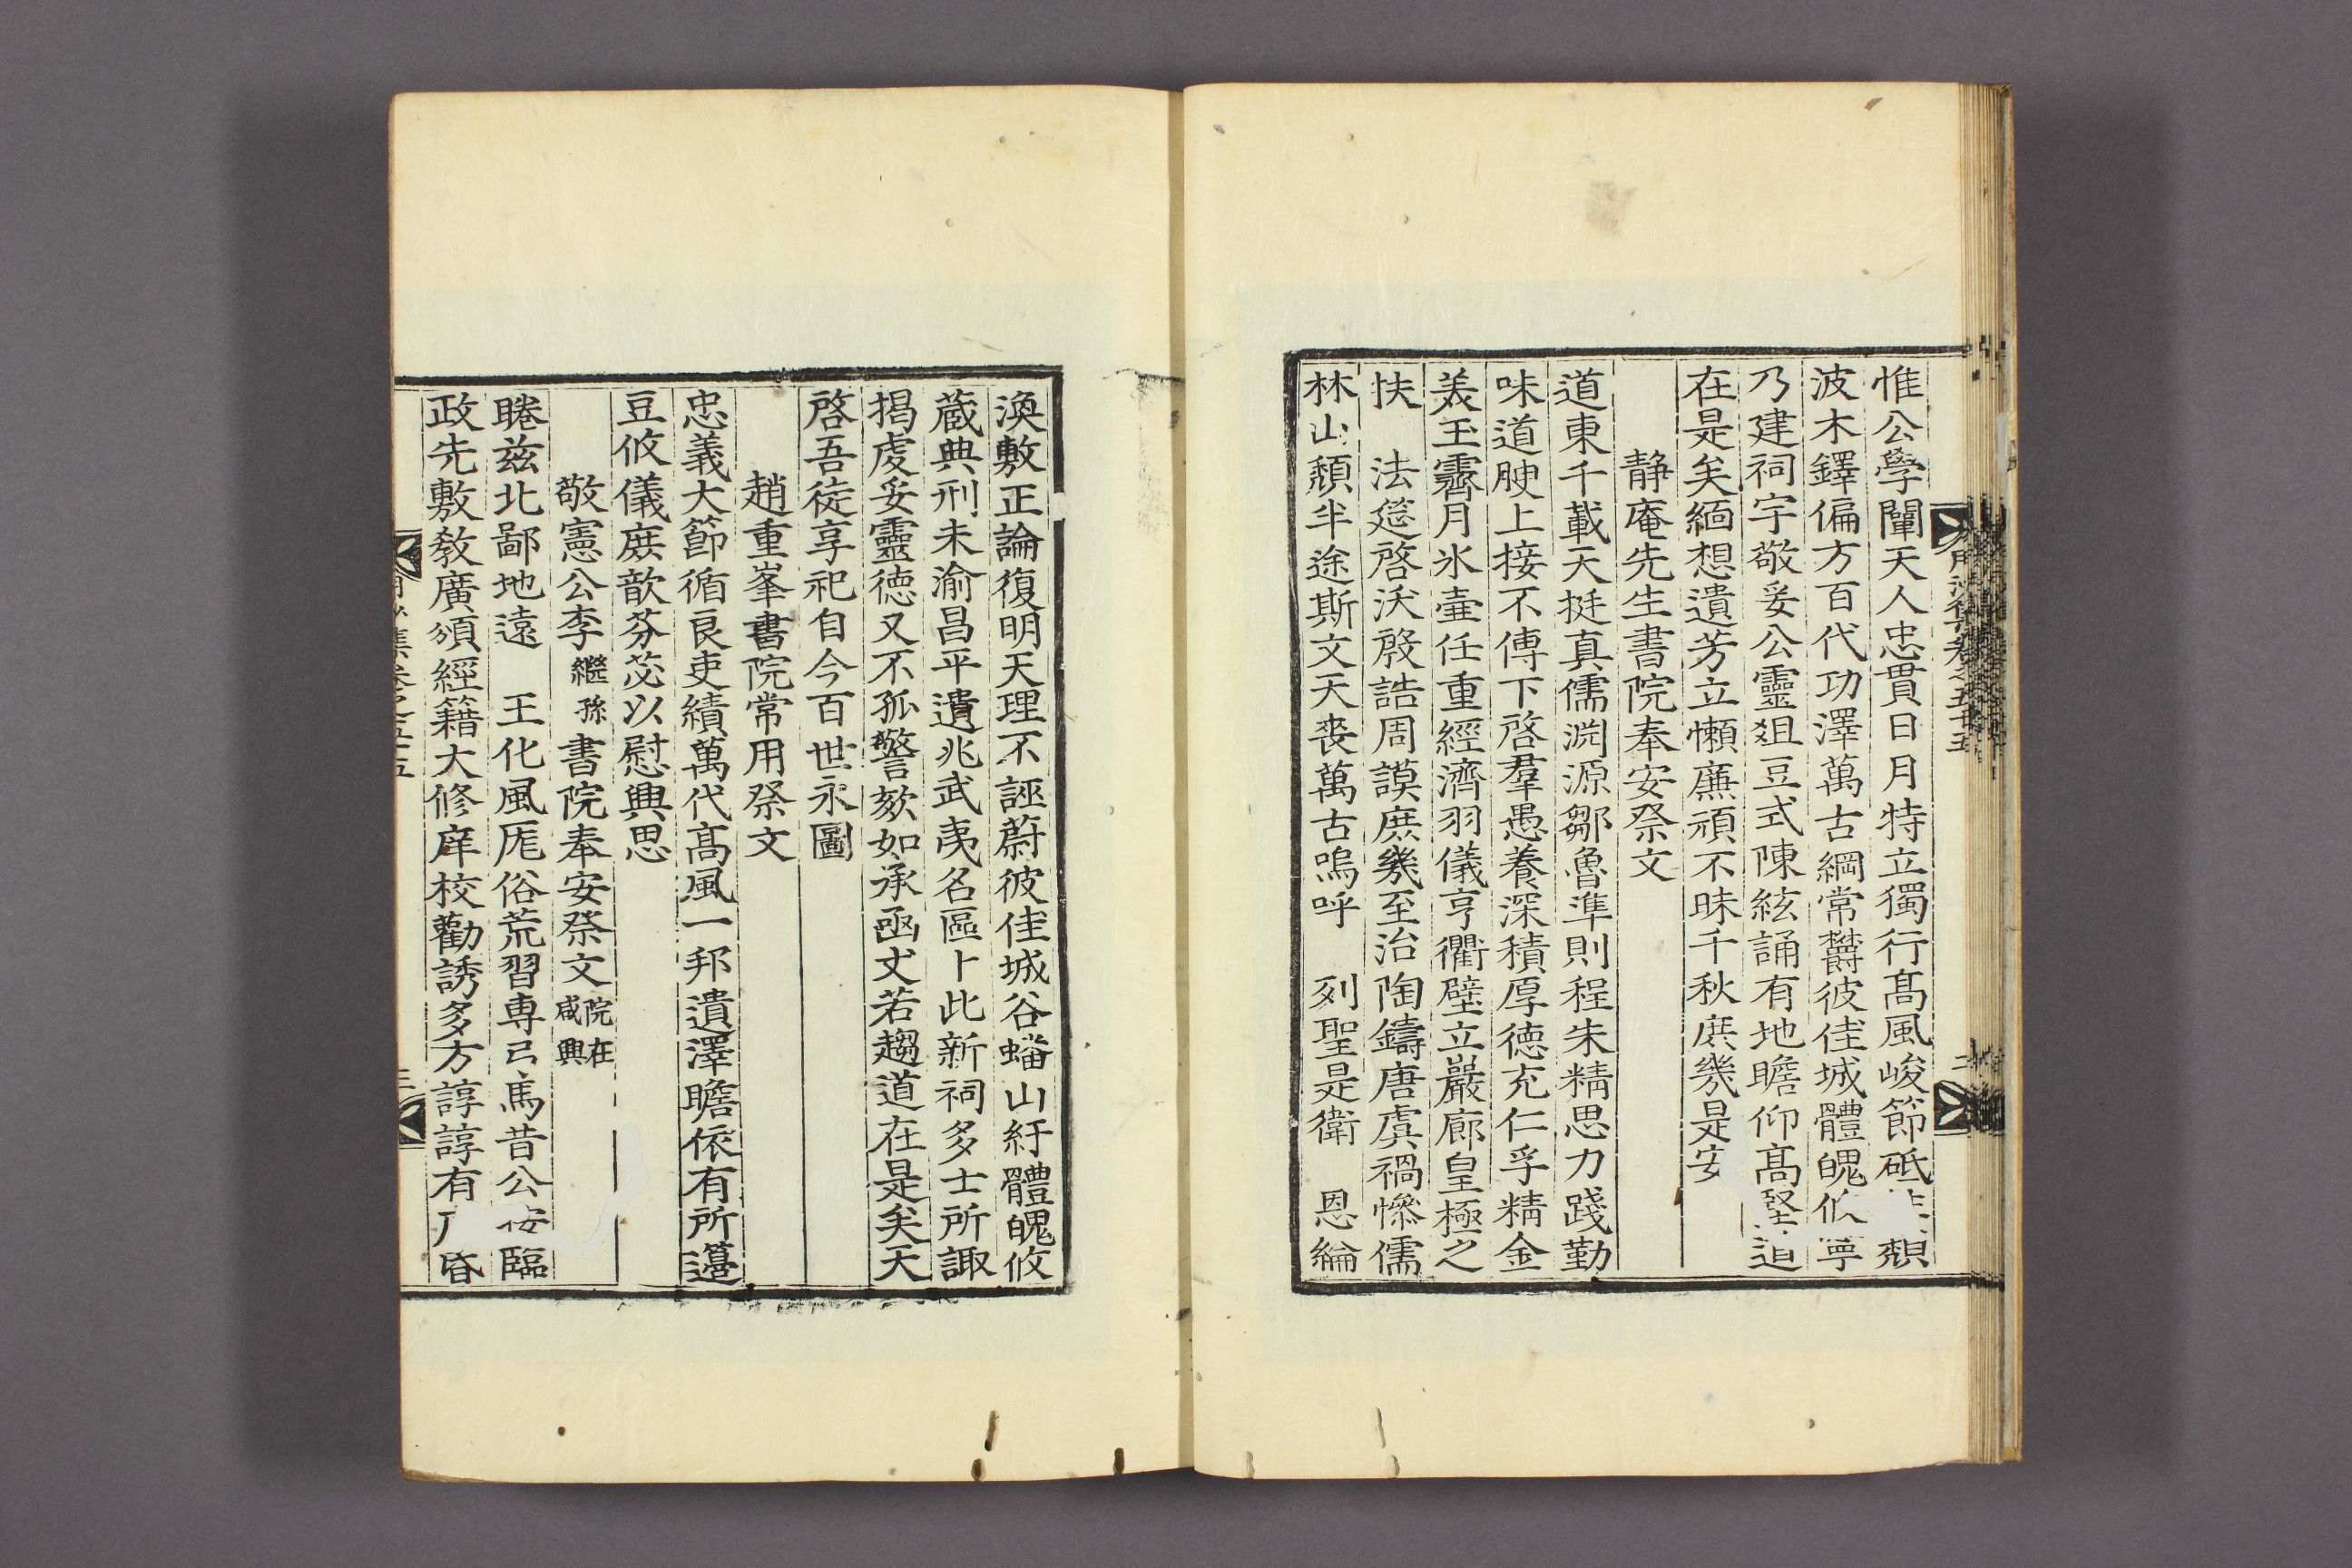 惟公學闡天人忠貫日月特立獨行高風峻節砥頹
波木鐸偏方百代功澤萬古綱常欝彼佳城體魄攸寧
乃建祠宇敬妥公靈爼豆式陳絃誦有地瞻仰高堅道
在是矣緬想遺芳立懶廉頑不昧千秋庶幾是安
静庵先生書院奉安祭文
道東千載天挺真儒淵源鄒魯準則程朱精思力踐勤
味道腴上接不傳下啓羣愚養深積厚德充仁孚精金
美玉霽月氷壷任重經濟羽儀亨衢壁立巖廊皇極之
扶　法筵啓沃殷誥周謨庶幾至治陶鑄唐虞禍慘儒
林山頹半途斯文天喪萬古嗚呼　列聖是衛　恩綸
渙敷正論復明天理不誣蔚彼佳城谷蟠山紆體魄攸
蔵典刑未渝昌平遺兆武夷名區卜此新祠多士所諏
揭虔妥靈德又不孤警欬如承函丈若趨道在是矣天
啓吾徒享祀自今百世永圖
趙重峯書院常用祭文
忠義大節循良吏績萬代高風一邦遺澤瞻依有所籩
豆攸儀庶歆芬苾以慰興思
敬憲公李繼孫書院奉安祭文院在咸興
睠兹北鄙地遠　王化風厖俗荒習專弓馬昔公按臨
政先敷教廣頒經籍大修庠校勸誘多方諄諄有昏